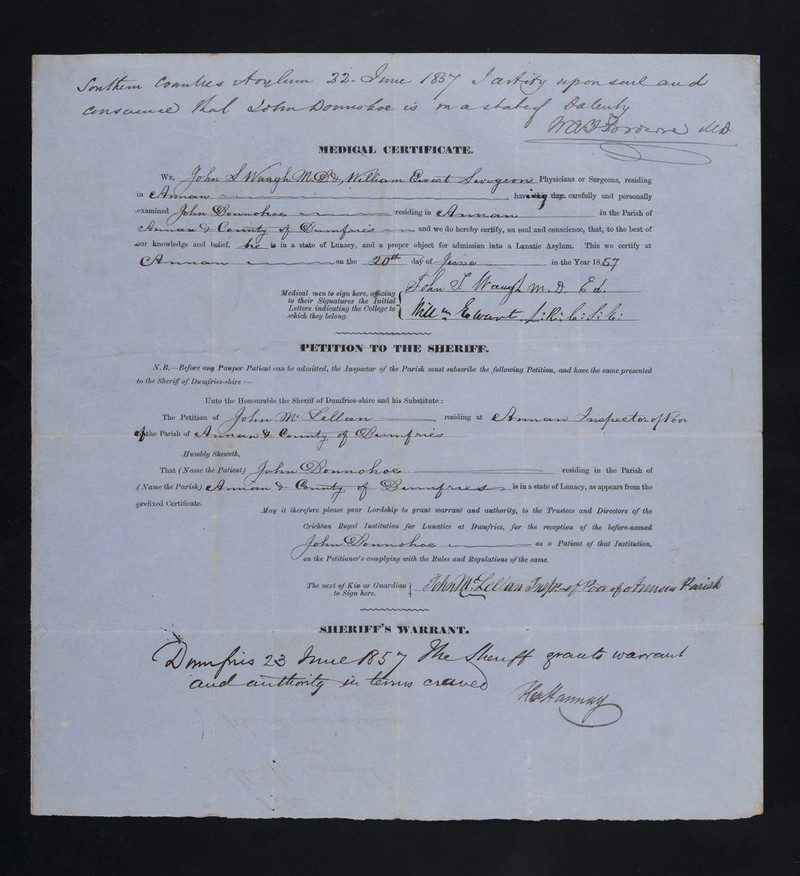 Southern Counties Asylum 22 June 1857 I certify upon soul and
conscience that John Donnohoe is in a state of
W A F Browne MD
MEDICAL CERTIFICATE.
WE, John S Waugh M.D. & William Ewart Surgeon Physicians or Surgeons, residing
in Annan having this day carefully and personally
examined John Donnohoe residing in Annan in the Parish of
Annan & County of Dumfries and we do hereby certify, on soul and conscience, that, to the best of
our knowledge and belief, he is in a state of Lunacy, and a proper object for admission into a Lunatic Asylum. This we certify at
Annan on the 20th day of June in the Year 1857
Medical men to sign here, affixing
to their Signatures the Initial
Letters indicating the College to
which they belong.
John S Waugh M.D Ed.
Willm Ewart L:R:C:S:E:
PETITION TO THE SHERIFF.
N.B.—Before any Pauper Patient can be admitted, the Inspector of the Parish must subscribe the following Petition, and have the same presented
to the Sheriff of Dumfries-shire:—
Unto the Honourable the Sheriff of Dumfries-shire and his Substitute:
The Petition of John McLellan residing at Annan Inspector of Poor
of the Parish of Annan & County of Dumfries
Humbly Sheweth,
That (Name the Patient) John Donnohoe residing in the Parish of
(Name the Parish) Annan & County of Dumfries is in a state of Lunacy, as appears from the
prefixed Certificate.
May it therefore please your Lordship to grant warrant and authority, to the Trustees and Directors of the
Crichton Royal Institution for Lunatics at Dumfries, for the reception of the before-named
John Donnohoe as a Patient of that Institution,
on the Petitioner's complying with the Rules and Regulations of the same.
The next of Kin or Guardian
to Sign here.
John McLellan Inspr of Poor of Annan Parish
SHERIFF'S WARRANT.
Dumfries 23 June 1857 The Sheriff grants warrant
and authority in terms craved
Hannay